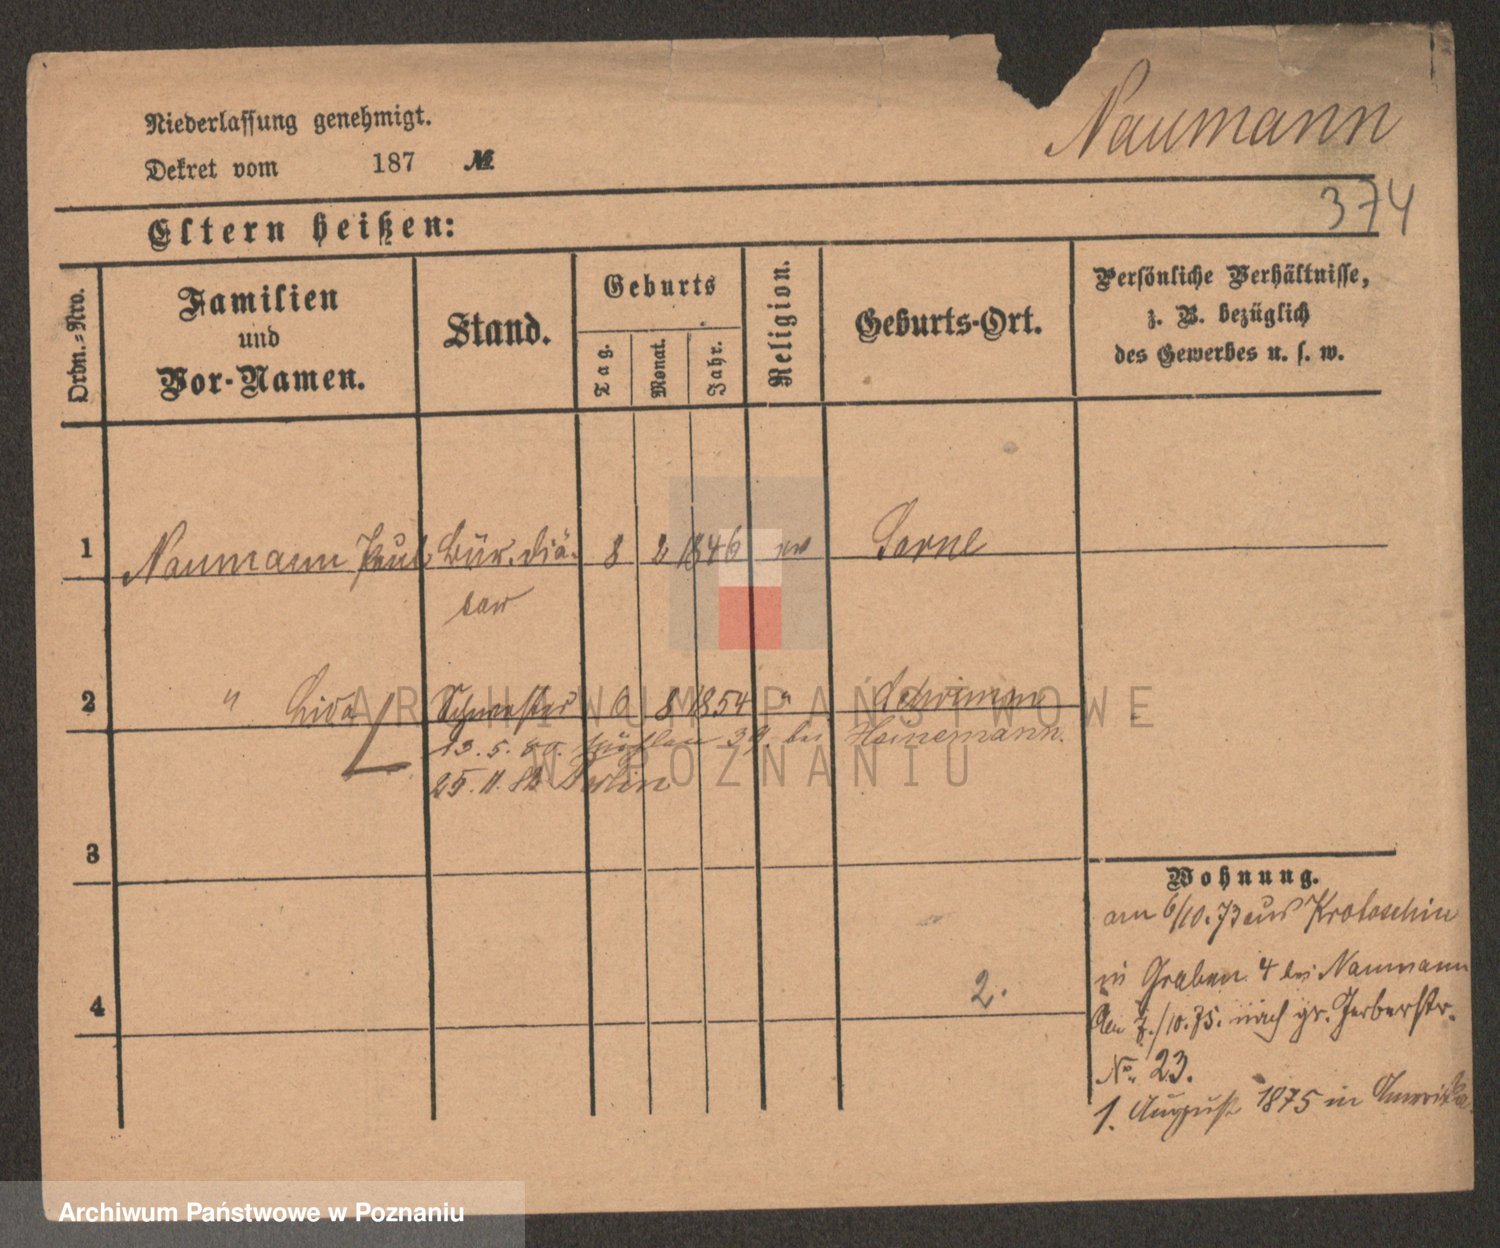 Naumann
Niederlassung genehmigt.
Dekret vom 187 №
374
Eltern heißen:
Ordn.-Nro.
Familien
und
Vor-Namen.
Stand.
Geburts
Tag.
Monat.
Jahr.
Religion.
Geburts-Ort.
Persönliche Verhältnisse,
z. B. bezüglich
des Gewerbes u. s. w.
1 Naumann Paul Bür. Diä- 8 2 1846 ev Sarne
tar
2 " Lida Schwester 6 8 1854 " Schrimm
13. 5. 80. 39. bei Heinemann.
25. 11. 82 Berlin
3
Wohnung.
am 6/10. 73 aus Krotoschin
in Graben 4 bei Naumann
4
2.
Den 7./10. 75. nach gr. Gerberstr.
No. 23.
1. August 1875 in Amerika.
ARCHIWUM PAŃSTWOWE
W POZNANIU
Archiwum Państwowe w Poznaniu